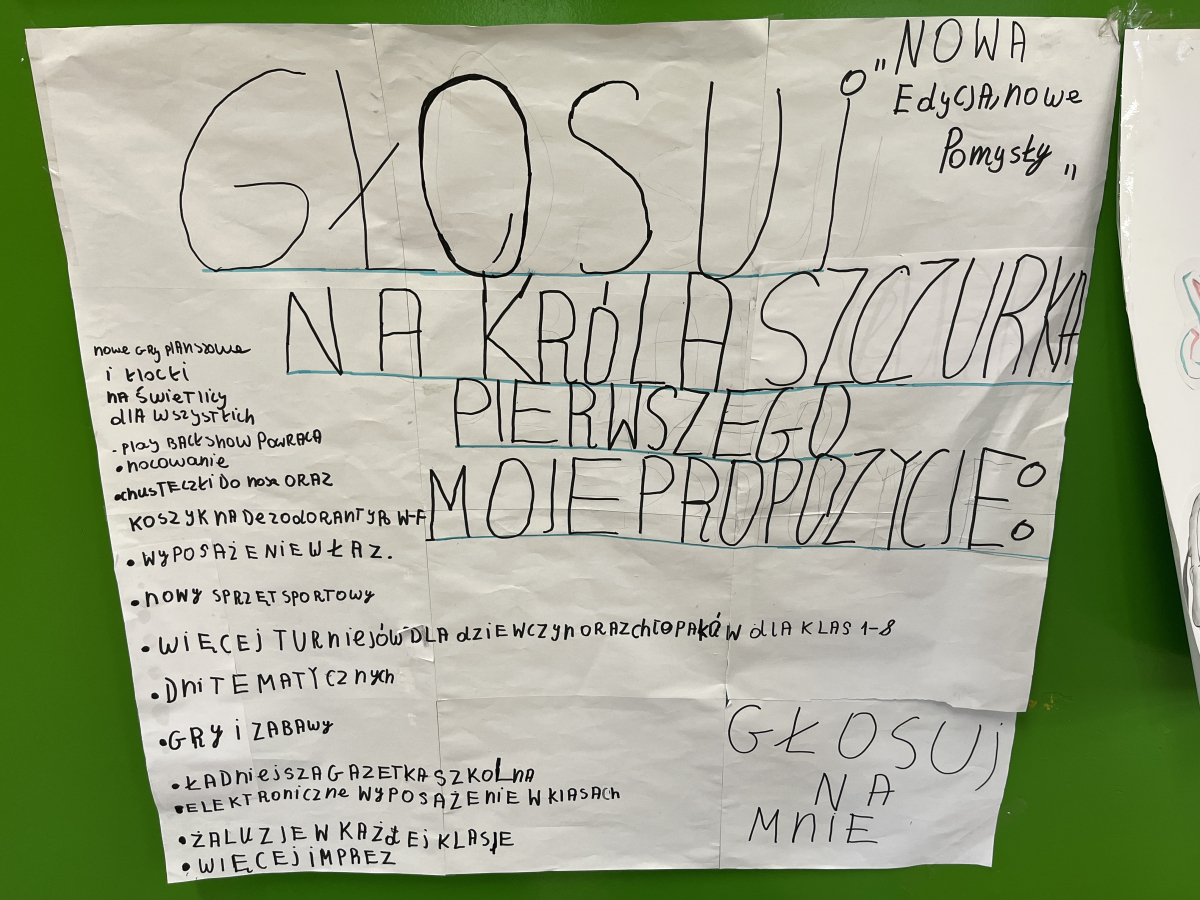 GŁOSUj
"NOWA
EdycJA, nowe
Pomysły „
NA KRÓLA SZCZURKA
PIERWSZEGO
MOJE PROPOZYCJE:
nowe GRY PlANSzowe
i kłocki
nA ŚwietlIcy
dlA wszystkich
- Play BACk SHOW POWRACA
• nocowanie
• chusTECZki Do nosa ORAZ
KOSZYK NA DezodoRANTY Po W-F
• WYPOSAŻENIE W ŁAZ.
• nowy SPRZĘT SPORTOWY
• WIĘCEJ TURniejów DLA dziEWCZYn ORAZ chłOPAków dlA KLAS 1-8
• Dni TEMATYCznych
• GRY i ZABAWY
• ŁADniejszA GAZETKA SZKOLnA
• ELEKTRONiCZNE WYPOSAŻENIE W KlASACH
• ŻALUZJE W KAŻdEj KLASJE
• WIĘCEJ iMPREZ
GŁOSUj
NA
MNIE